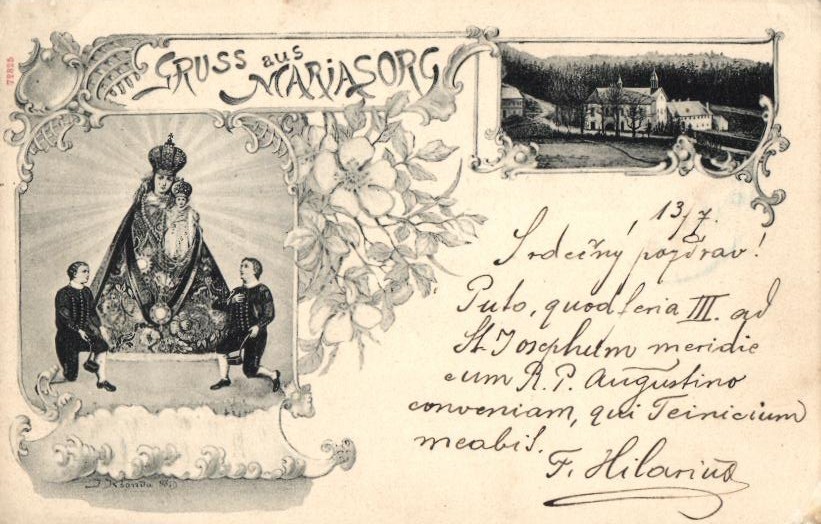 72825
GRUSS aus
MARIASORG
13/7.
Srdečný pozdrav!
Puto, quod feria III. ad
St. Josephum meridie
cum R. P. Augustino
conveniam, qui Teinicium
meabit.
F. Hilarius